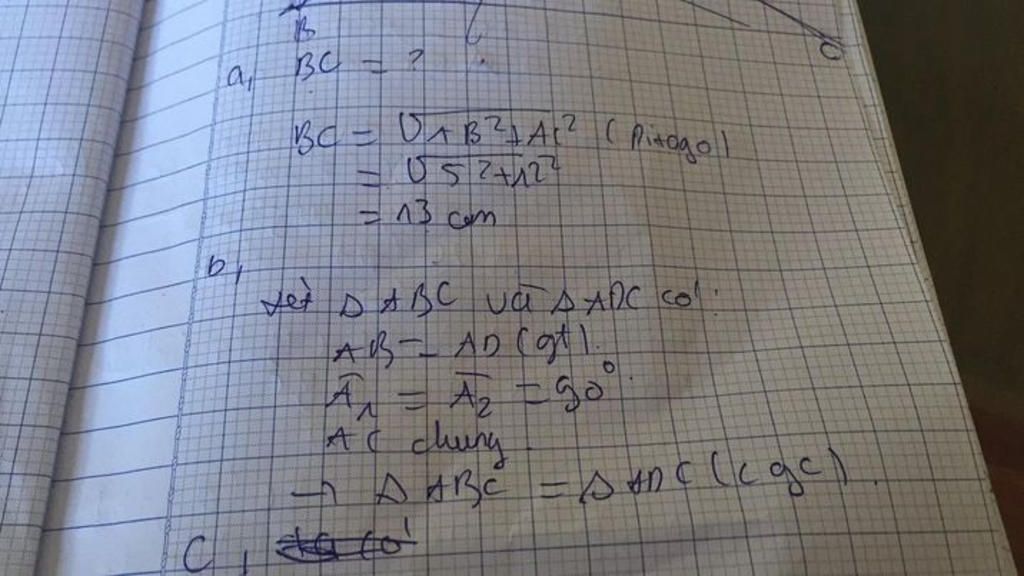 B C
a, BC = ?
BC = √AB²+AC² (Pitago)
= √5²+12²
= 13 cm
b,
Xét Δ ABC và Δ ADC có:
AB = AD (gt).
A₁ = A₂ = 90°.
AC chung
→ Δ ABC = Δ ADC (c g c).
C, ta có